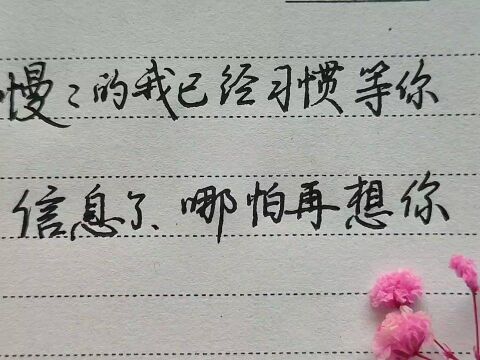 慢々的我已经习惯等你
信息了、哪怕再想你